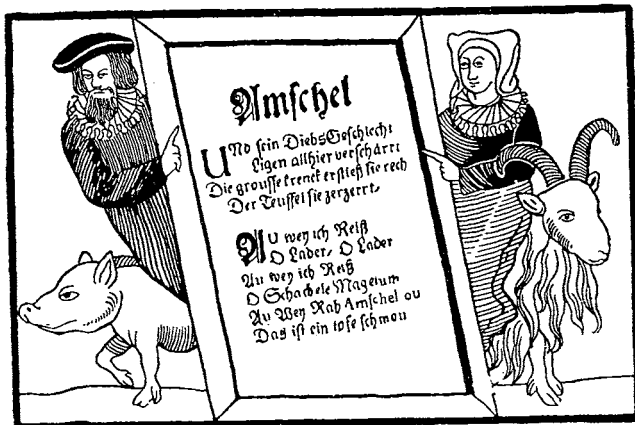 Amschel
Und sein DiebsGeschlecht
Ligen allhier verscharrt
Die grousse krenck erstieß sie rech
Der Teuffel sie zerzerrt,
Au wey ich Reiß
O Lader, O Lader
Au wey ich Reiß
O Schachele Magetum
Au Wey Rab Amschel ou
Das ist ein tofe schmou